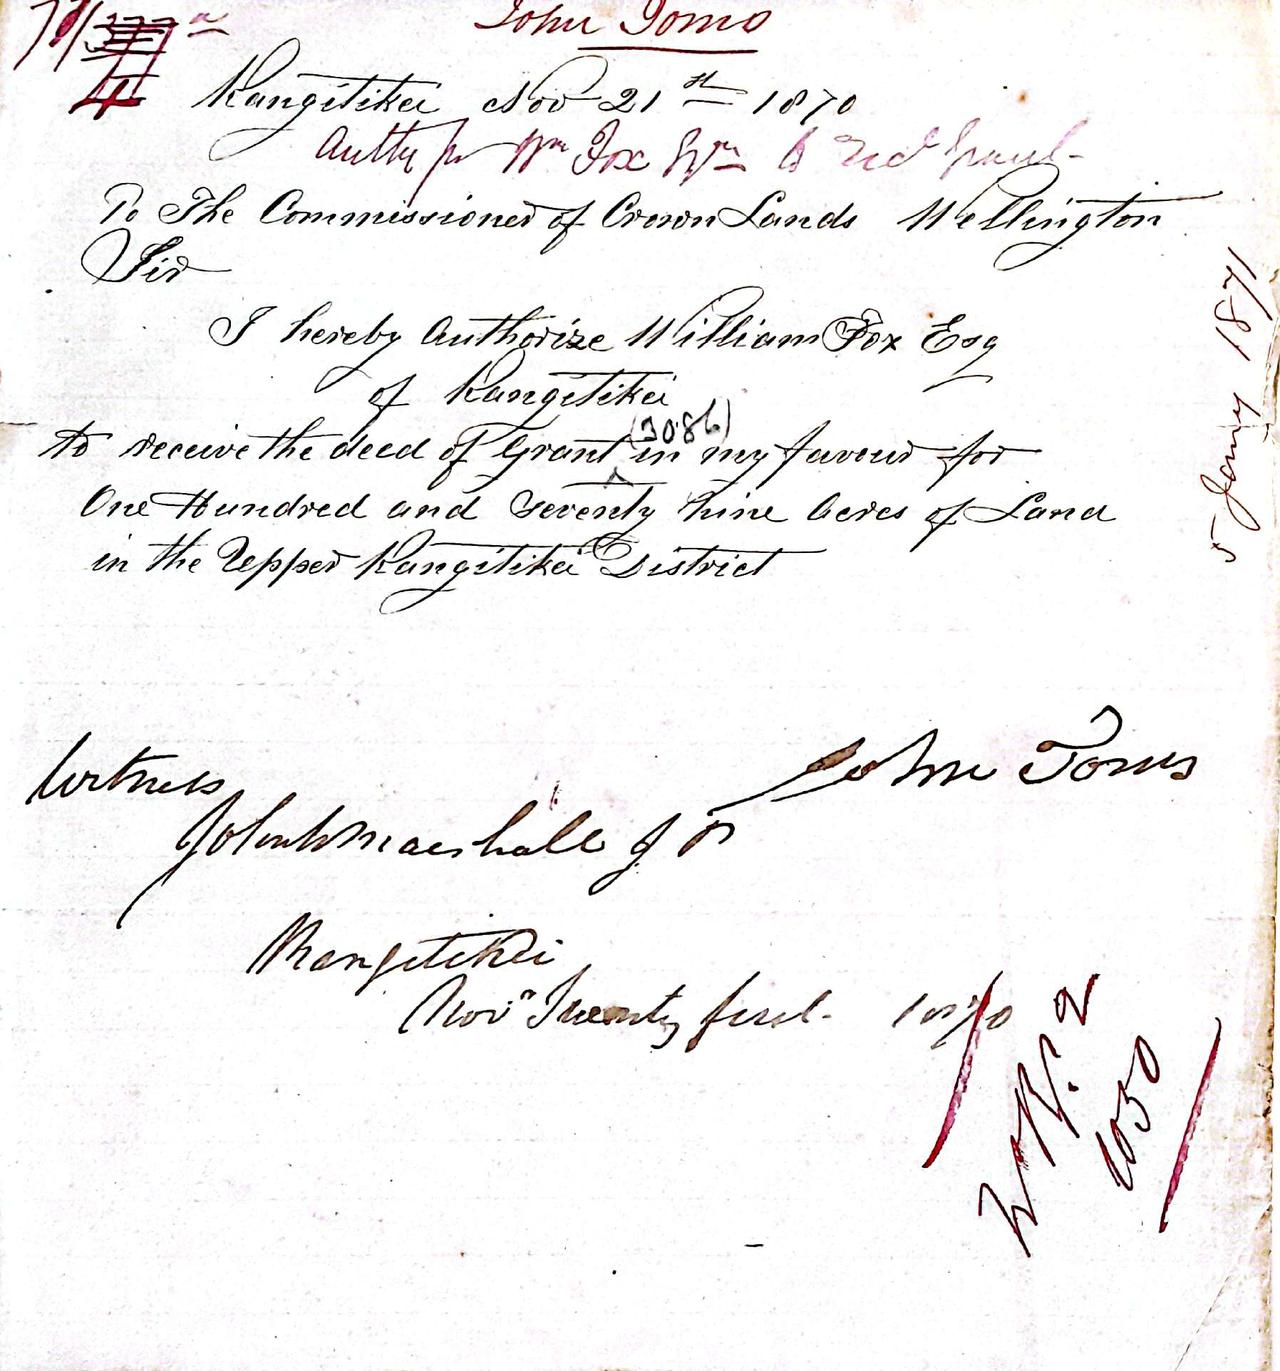 John Toms
71/
4
Rangitikei Nov 21st 1870
Authy for Wm Fox Esqre to rec Grant
To The Commissioner of Crown Lands Wellington
Sir
I hereby Authorize William Fox Esq
of Rangitikei
to receive the deed of Grant (3086) in my favour for
One Hundred and Seventy nine Acres of Land
in the Upper Rangitikei District
5 Jany 1871
John Toms
Witness
John W Marshall J P
Rangitikei
Novr Twenty first 1870
2
1050